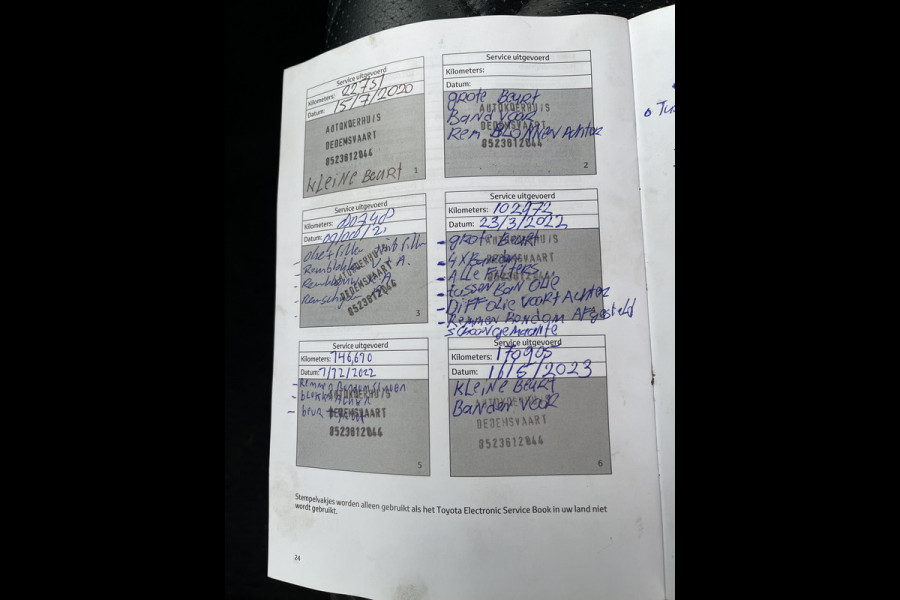 Service uitgevoerd
Kilometers: 22751
Datum: 15/7/2020
AUTOKOERHUIS
DEDEMSVAART
0523612044
KLEINE BEURT
1
Service uitgevoerd
Kilometers:
Datum:
grote Beurt
AUTOKOERHUIS
Band voor
DEDEMSVAART
Rem BLOKKEN Achter
0523612044
2
Service uitgevoerd
Kilometers:
Datum:
AUTOKOERHUIS
DEDEMSVAART
0523612044
3
Service uitgevoerd
Kilometers: 102972
Datum: 23/3/2022
- grote Beurt
- 4x Banden
- ALLE Filters
- tussen BAK OLIE
- DIFF OLIE VOORT Achter
- Remmen Rondom AFgesteld
schoongemaakte
Service uitgevoerd
Kilometers: 146,670
Datum: 7/12/2022
AUTOKOERHUIS
DEDEMSVAART
0523612044
5
Service uitgevoerd
Kilometers: 170905
Datum: 16/5/2023
KLEINE BEURT
Banden voor
AUTOKOERHUIS
DEDEMSVAART
0523612044
6
Stempelvakjes worden alleen gebruikt als het Toyota Electronic Service Book in uw land niet
wordt gebruikt.
24